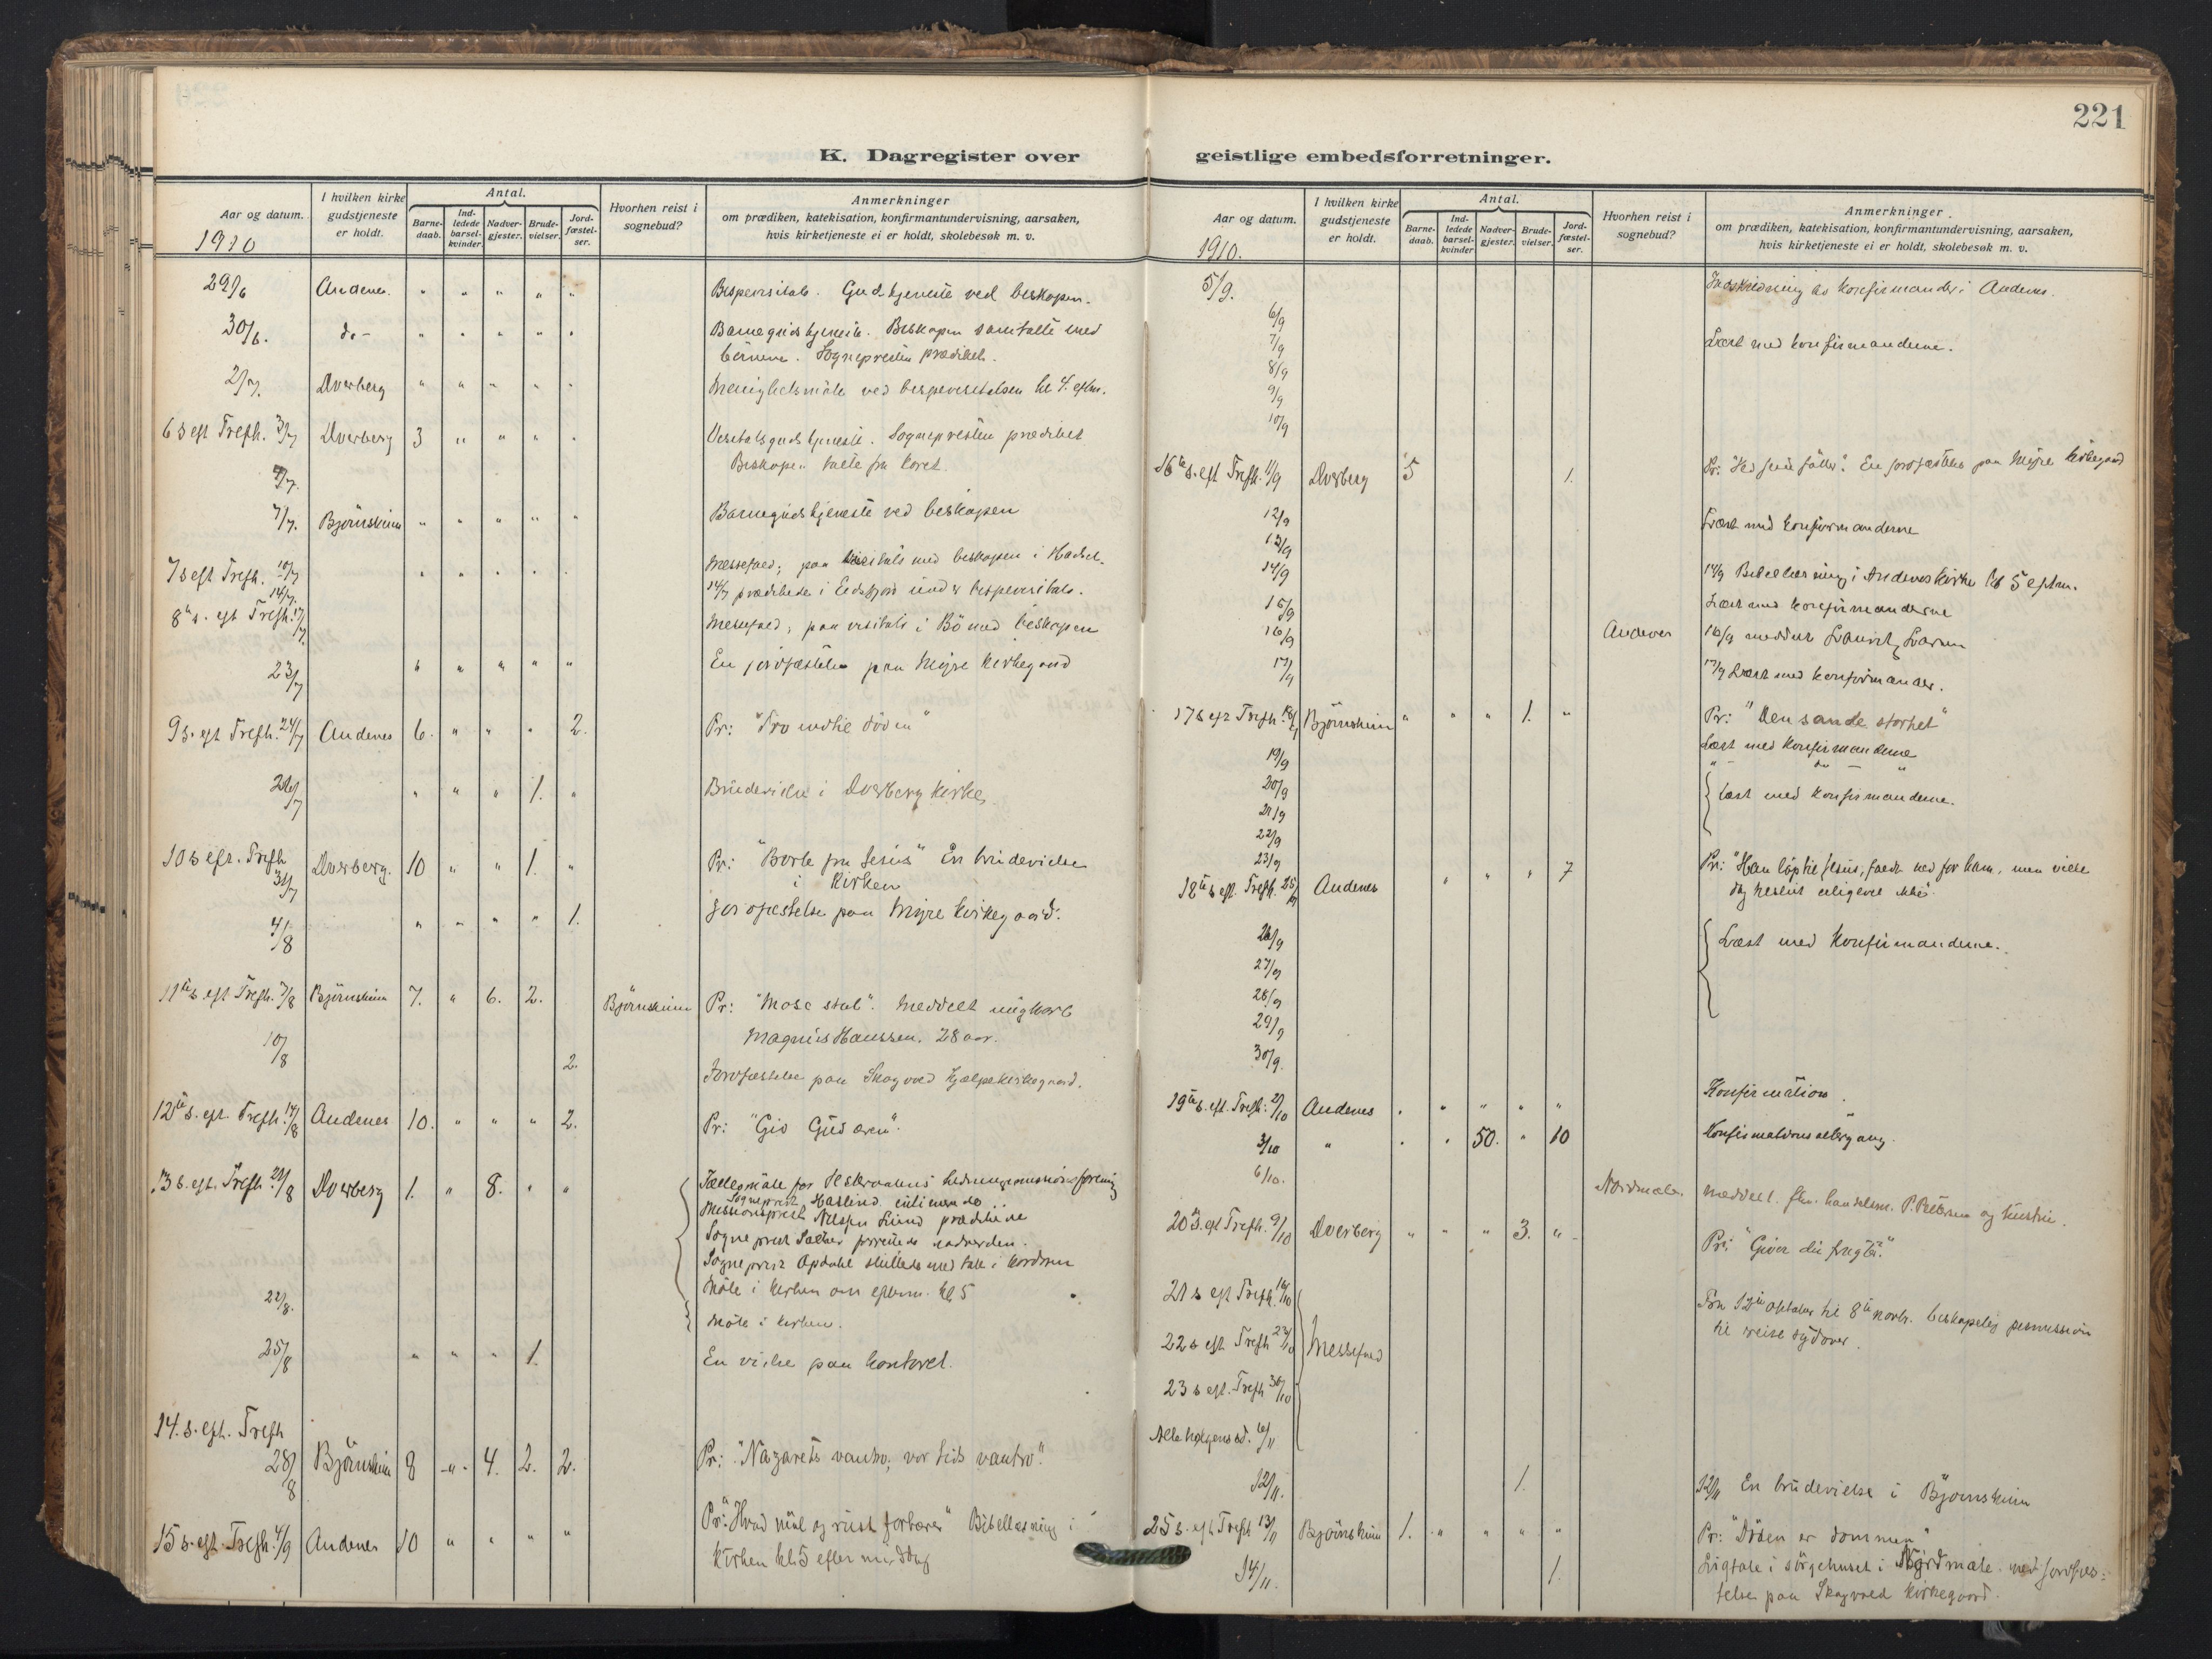 221
K. Dagregister over geistlige embedsforretninger.
Aar og datum.
1910
I hvilken kirke gudstjeneste er holdt.
Antal.
Barne-daab.
Ind-ledede barsel-kvinder.
Nadver-gjester.
Brude-vielser.
Jord-fæstel-ser.
Hvorhen reist i sognebud?
Anmerkninger
om prædiken, katekisation, konfirmantundervisning, aarsaken,
hvis kirketjeneste ei er holdt, skolebesøk m. v.
29/6 Andenes. " " " " " Bispevisitats. Gudstjeneste ved biskopen.
30/6. do- " " " " " Barnegudstjeneste. Biskopen samtalte med
børnene. Sognepresten prædiket.
2/7. Dverberg " " " " " Menighetsmøte ved bispevisitatsen kl 4. eftm.
6 s eft Trefh. 3/7 Dverberg 3 " " " " Visitatsgudstjeneste. Sognepresten prædiket
Biskopen talte fra koret.
7/7. Bjørnskinn " " " " " Barnegudstjeneste ved biskopen
7 s eft Trefh. 10/7 " " " " " Messefald; paa visitats med biskopen i Hadsel.
14/7. 14/7 prædikede i Eidsfjord under bispevisitats.
8de s. eft Trefh. 17/7. Messefald, paa visitats i Bø med biskopen
23/7 " " " " " En jordfæstelse paa Myre kirkegaard
9 s. eft Trefh. 24/7 Andenes 6. " " " 2. Pr: "Tro indtil døden"
26/7 " " " 1. " Brudevielse i Dverberg kirke
10 s eft. Trefh 31/7 Dverberg. 10 " " 1. " Pr: "Borte fra Jesus" En brudevielse
i kirken
4/8 " " " " 1. Jordfæstelse paa Myre kirkegaard.
11te s. eft Trefh. 7/8 Bjørnskinn 7. " 6. 2. Bjørnskinn Pr: "Mose stol". Meddelt ungkarl
Magnus Hanssen. 28 aar.
10/8 2. Jordfæstelse paa Skogvold hjælpekirkegaard.
12te s. eft. Trefh. 14/8 Andenes 10. " " " 2. Pr: "Giv Gud æren".
13 s. eft. Trefh. 21/8 Dverberg 1. " 8. " "
Sogneprest Haslund
Missionsprest Nilssen Lund prædikede
Sogneprest
Sogneprest Opdahl sluttede med tale i kordøren
Møte i kirken om efterm. kl 5
22/8. Møte i kirken.
25/8 " " " 1. En vielse paa kontoret.
14. s. eft. Trefh
28/8 Bjørnskinn 8 -"- 4. 2. 2. Pr: "Nazarets vantro, vor tids vantro".
15 s. eft. Trefh. 4/9 Andenes 10 " " " " Pr: "Hvad møl og rust fortærer" Bibellæsning i
kirken kl. 5 eftermiddag
Aar og datum.
1910.
I hvilken kirke gudstjeneste er holdt.
Antal.
Barne-daab.
Ind-ledede barsel-kvinder
Nadver-gjester.
Brude-vielser.
Jord-fæstel-ser.
Hvorhen reist i sognebud?
Anmerkninger.
om prædiken, katekisation, konfirmantundervisning, aarsaken,
hvis kirketjeneste ei er holdt, skolebesøk m. v.
5/9. Indskrivning av konfirmander i Andenes.
6/9
7/9 Læst med konfirmanderne.
8/9
9/9
10/9
16te s. eft Trefh. 11/9 Dverberg 5 1. En jordfæstelse paa Myre kirkegaard
12/9 Læst med konfirmanderne
13/9
14/9 14/9 Bibellæsning i Andenes kirke kl 5 eftm.
15/9 Læst med konfirmanderne
16/9 Andenes 16/9 meddelt
17/9 17/9 Læst med konfirmander.
17 s eft Trefh. 18/9 Bjørnskinn " " " 1. " Pr: "Den sande storhet"
19/9 Læst med konfirmanderne
20/9 " do - "
21/9 Læst med konfirmanderne.
22/9
23/9
18te s eft. Trefh. 25/9 Andenes " " " 7 Pr: "Han løp til Jesus, faldt ned for ham, men vilde
26/9 Læst med konfirmanderne.
27/9
28/9
29/9
30/9.
19te s. eft. Trefh: 2/10 Andenes " " " " " Konfirmation.
3/10 " " " 50. " 10 Konfirmationsaltergang.
6/10. Nordmæle meddelt P. Petersen og hustru.
20de s. eft Trefh. 9/10 Dverberg " " " 3. " Pr: "Giver din frugt".
21 s eft Trefh. 16/10 Fra 12te oktober til 8de novbr. biskopelig permission
22 s eft Trefh 23/10 Messefald til reise sydover.
23 s eft. Trefh 30/10
Allehelgenssd. 6/11
12/11. 1. 12/11 En brudevielse i Bjørnskinn
25 s. eft Trefh 13/11 Bjørnskinn 1. " " " " Pr: "Døden er dommen"
14/11. 1. Ligtale i sørgehuset i Nordmæle med jordfæs=
telse paa Skogvold kirkegaard.